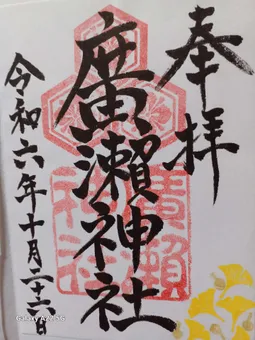 奉拝
廣瀬神社
令和六年十月二十二日
廣瀬
神社